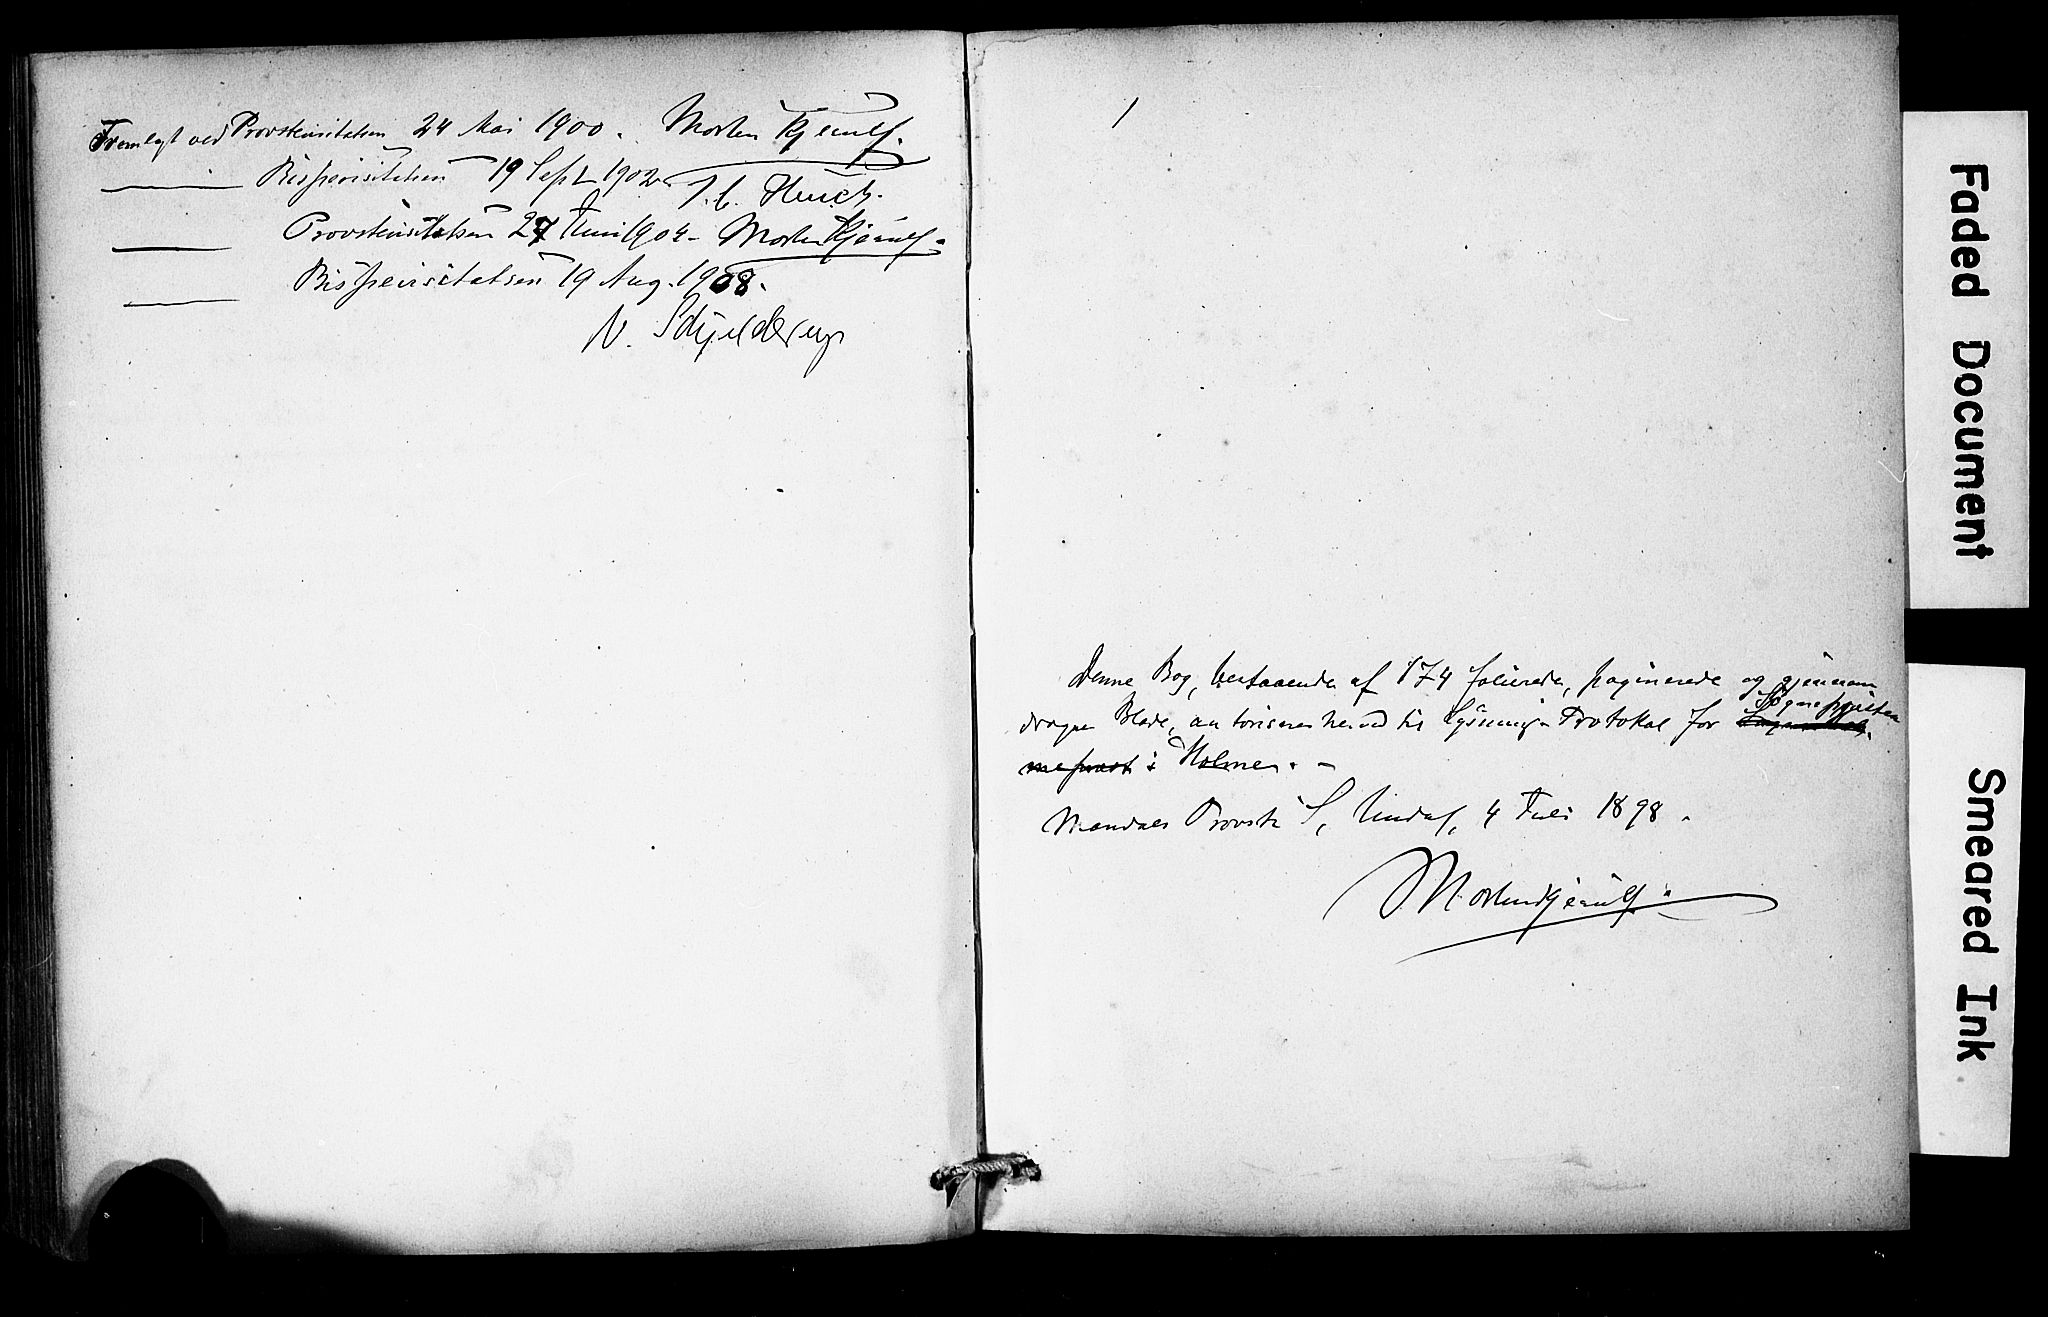 Fremlagt ved Provstevisitatsen 24 Mai 1900. Morten Kjerulf.
——— Bispevisitatsen 19 Sept 1902 J. C. Heuch.
——— Provstevisitatsen 27 Juni 1904 - Morten Kjerulf.
——— Bispevisitatsen 19 Aug. 1908.
N. Schjelderup
1
Denne Bog, bestaaende af 174 folierede, paginerede og gjennem
dragne Blade, autoriseres herved til Lysnings Protokol for Sognepresten
i Holme. -
Mandals Provsti S. Undal, 4 Juli 1898.
Morten Kjerulf.
Faded Document
Smeared Ink